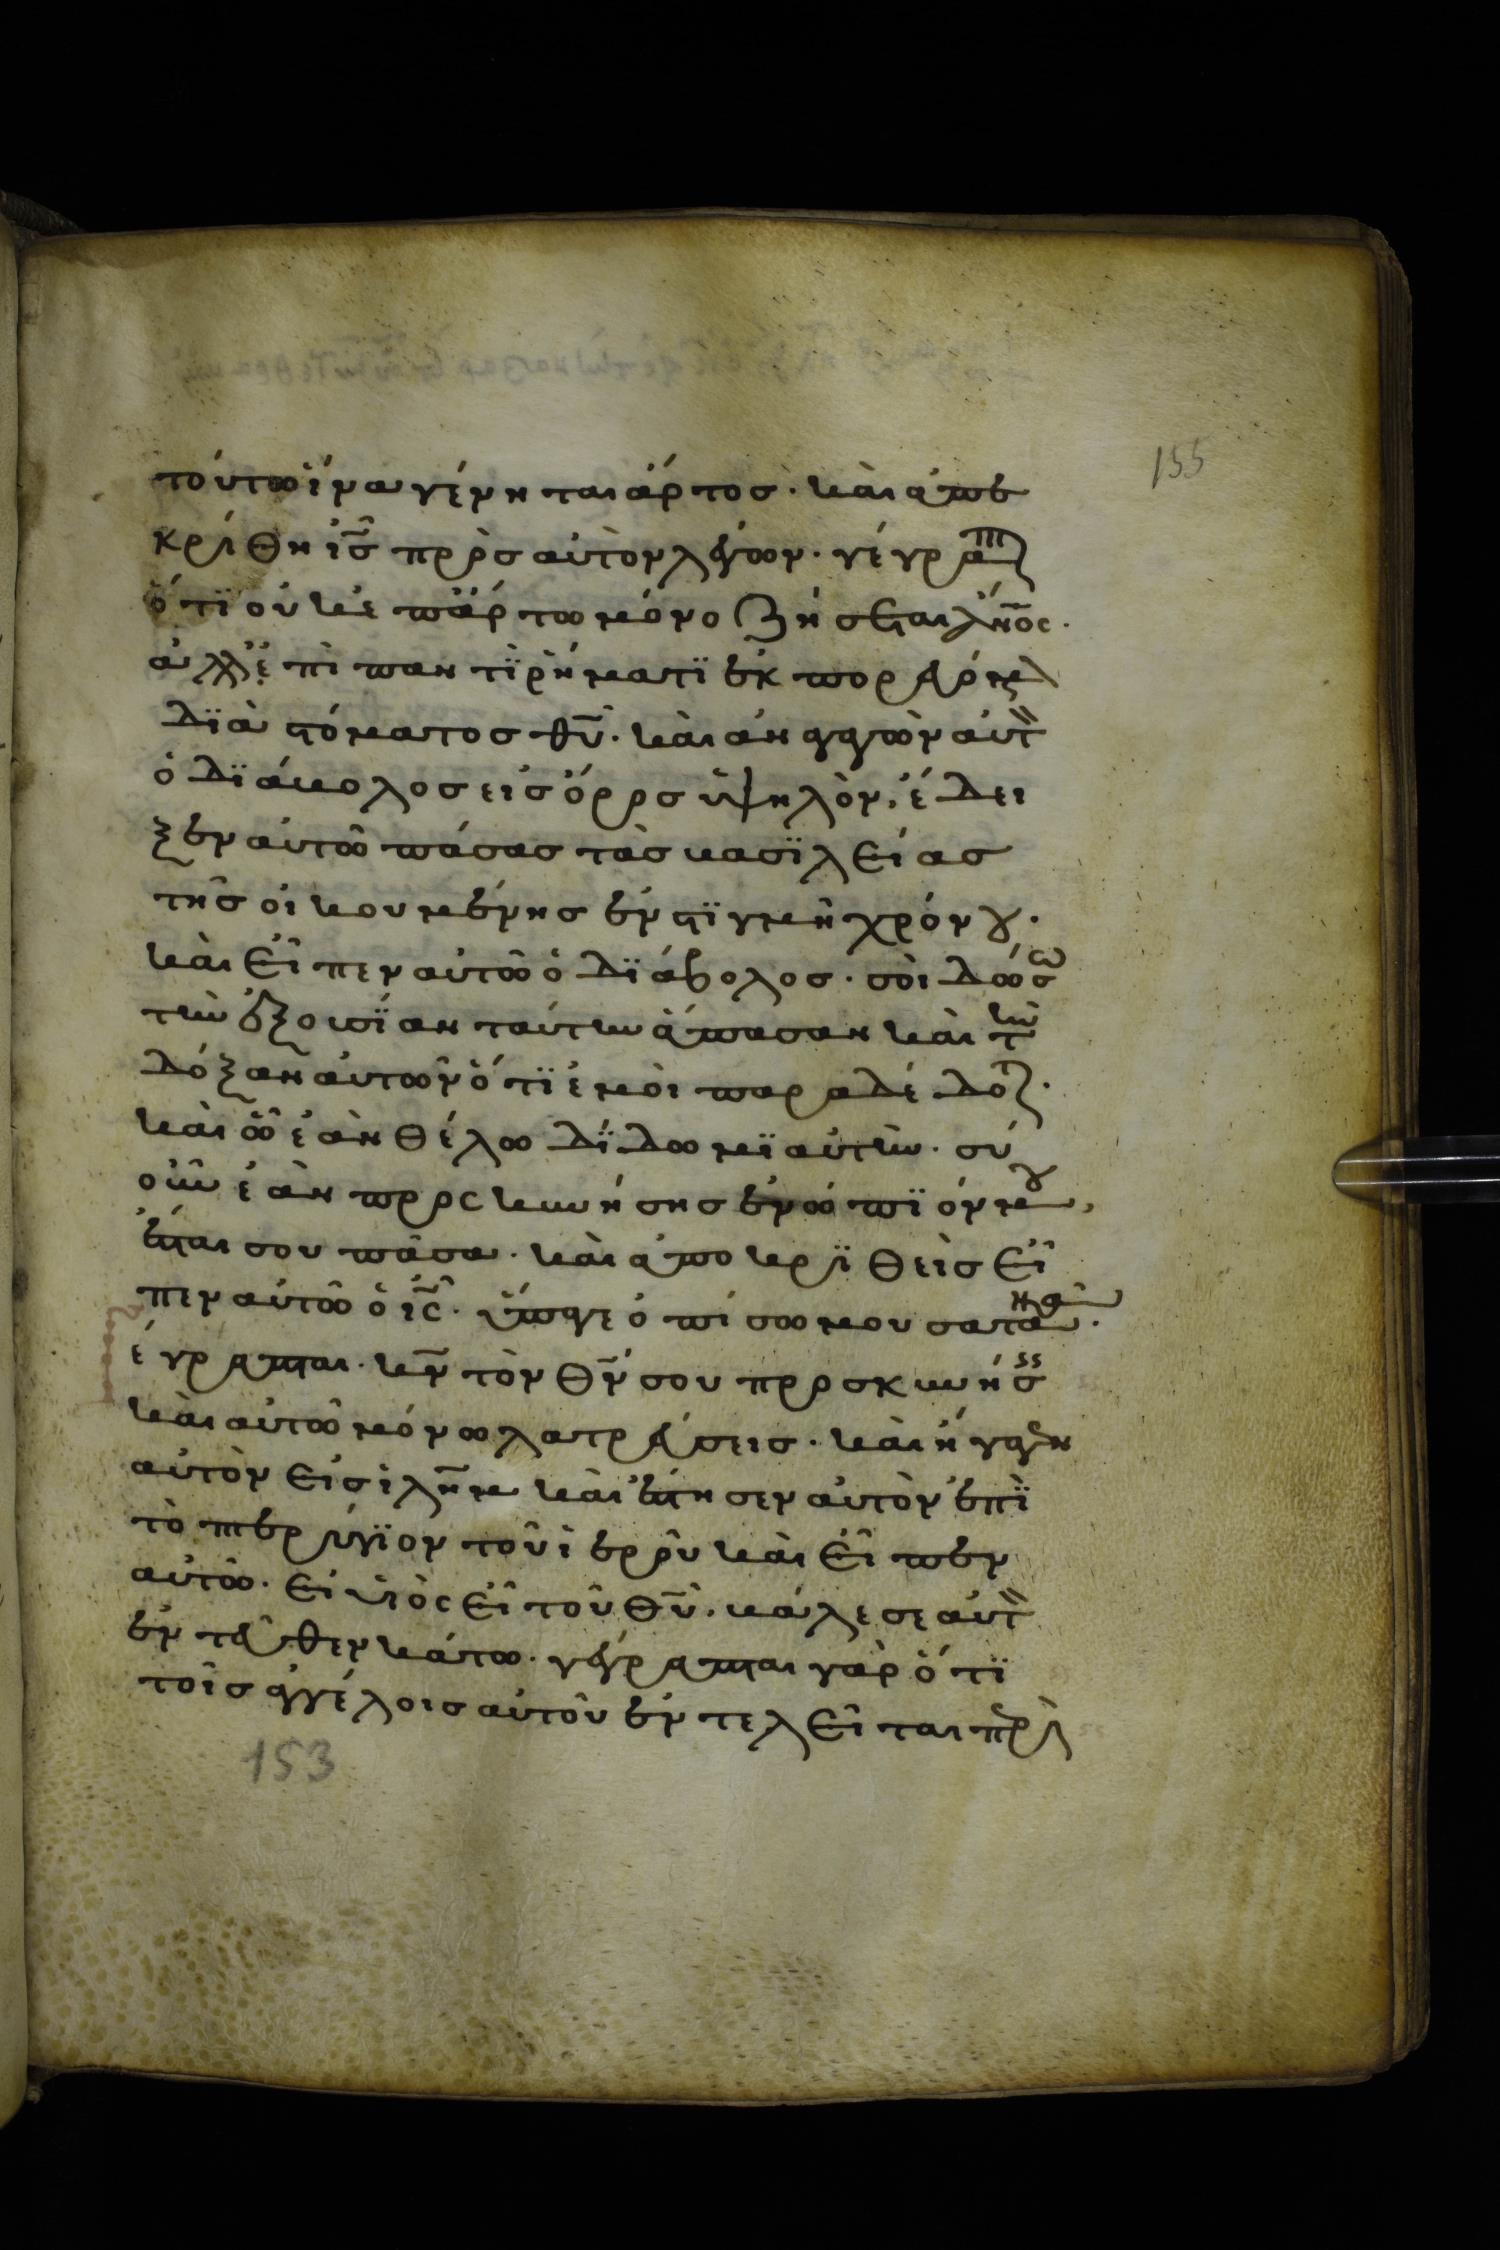 155
τούτω ἵνα γένηται ἄρτος· καὶ ἀπε
κρίθη ἰς̄ πρὸς αὐτὸν λέγων· γέγραπτ
ὅτϊ οὐκ ἐπ ἄρτω μόνο ζήσεται ἄνο̄ς·
ἀλλ ἐπὶ παντϊ ῥήματϊ ἐκπορευόμε
δϊὰ στόματος θῡ· καὶ ἀναγαγὼν αὐτ
ὁ δϊάβολος εἰς ὄρος ὑψηλὸν, ἔδει
ξεν αὐτῶ πάσας τὰς βασϊλείας
τῆς οἰκουμένης ἐν στϊγμῆ χρόνου·
καὶ εἶπεν αὐτῶ ὁ δϊάβολος· σοὶ δώσω
τὴν ἐξουσϊαν ταύτην ἅπασαν καὶ τὴν
δόξαν αὐτῶν ὅτϊ ἐμοὶ παραδέδοτ·
καὶ ὧ ἐὰν θέλω δίδωμϊ αὐτὴν· σύ
οὖν ἐὰν προσκυνήσης ἐνώπϊόν μου,
ἔσται σου πᾶσα· καὶ ἀποκρϊθεὶς εἶ
πεν αὐτῶ ὁ ἰς̄· ὕπαγε ὀπίσω μου σατανᾶ·
έγραπται· κν̄ τὸν θν̄ σου προσκυνήσ
καὶ αὐτῶ μόνω λατρεύσεις· καὶ ἤγαγεν
αὐτὸν εἰς ἰλη̄μ καὶ ἔστησεν αὐτὸν ἐπϊ
τὸ πτερύγϊον τοῦ ἱεροῦ καὶ εἶπεν
αὐτῶ· εἰ υἱὸς εἶ τοῦ θῡ· βάλε σε αὐτ
ἐντεῦθεν κάτω· γέγραπται γὰρ ὅτϊ
τοῖς ἀγγέλοις αὐτοῦ ἐντελεῖται περὶ
153